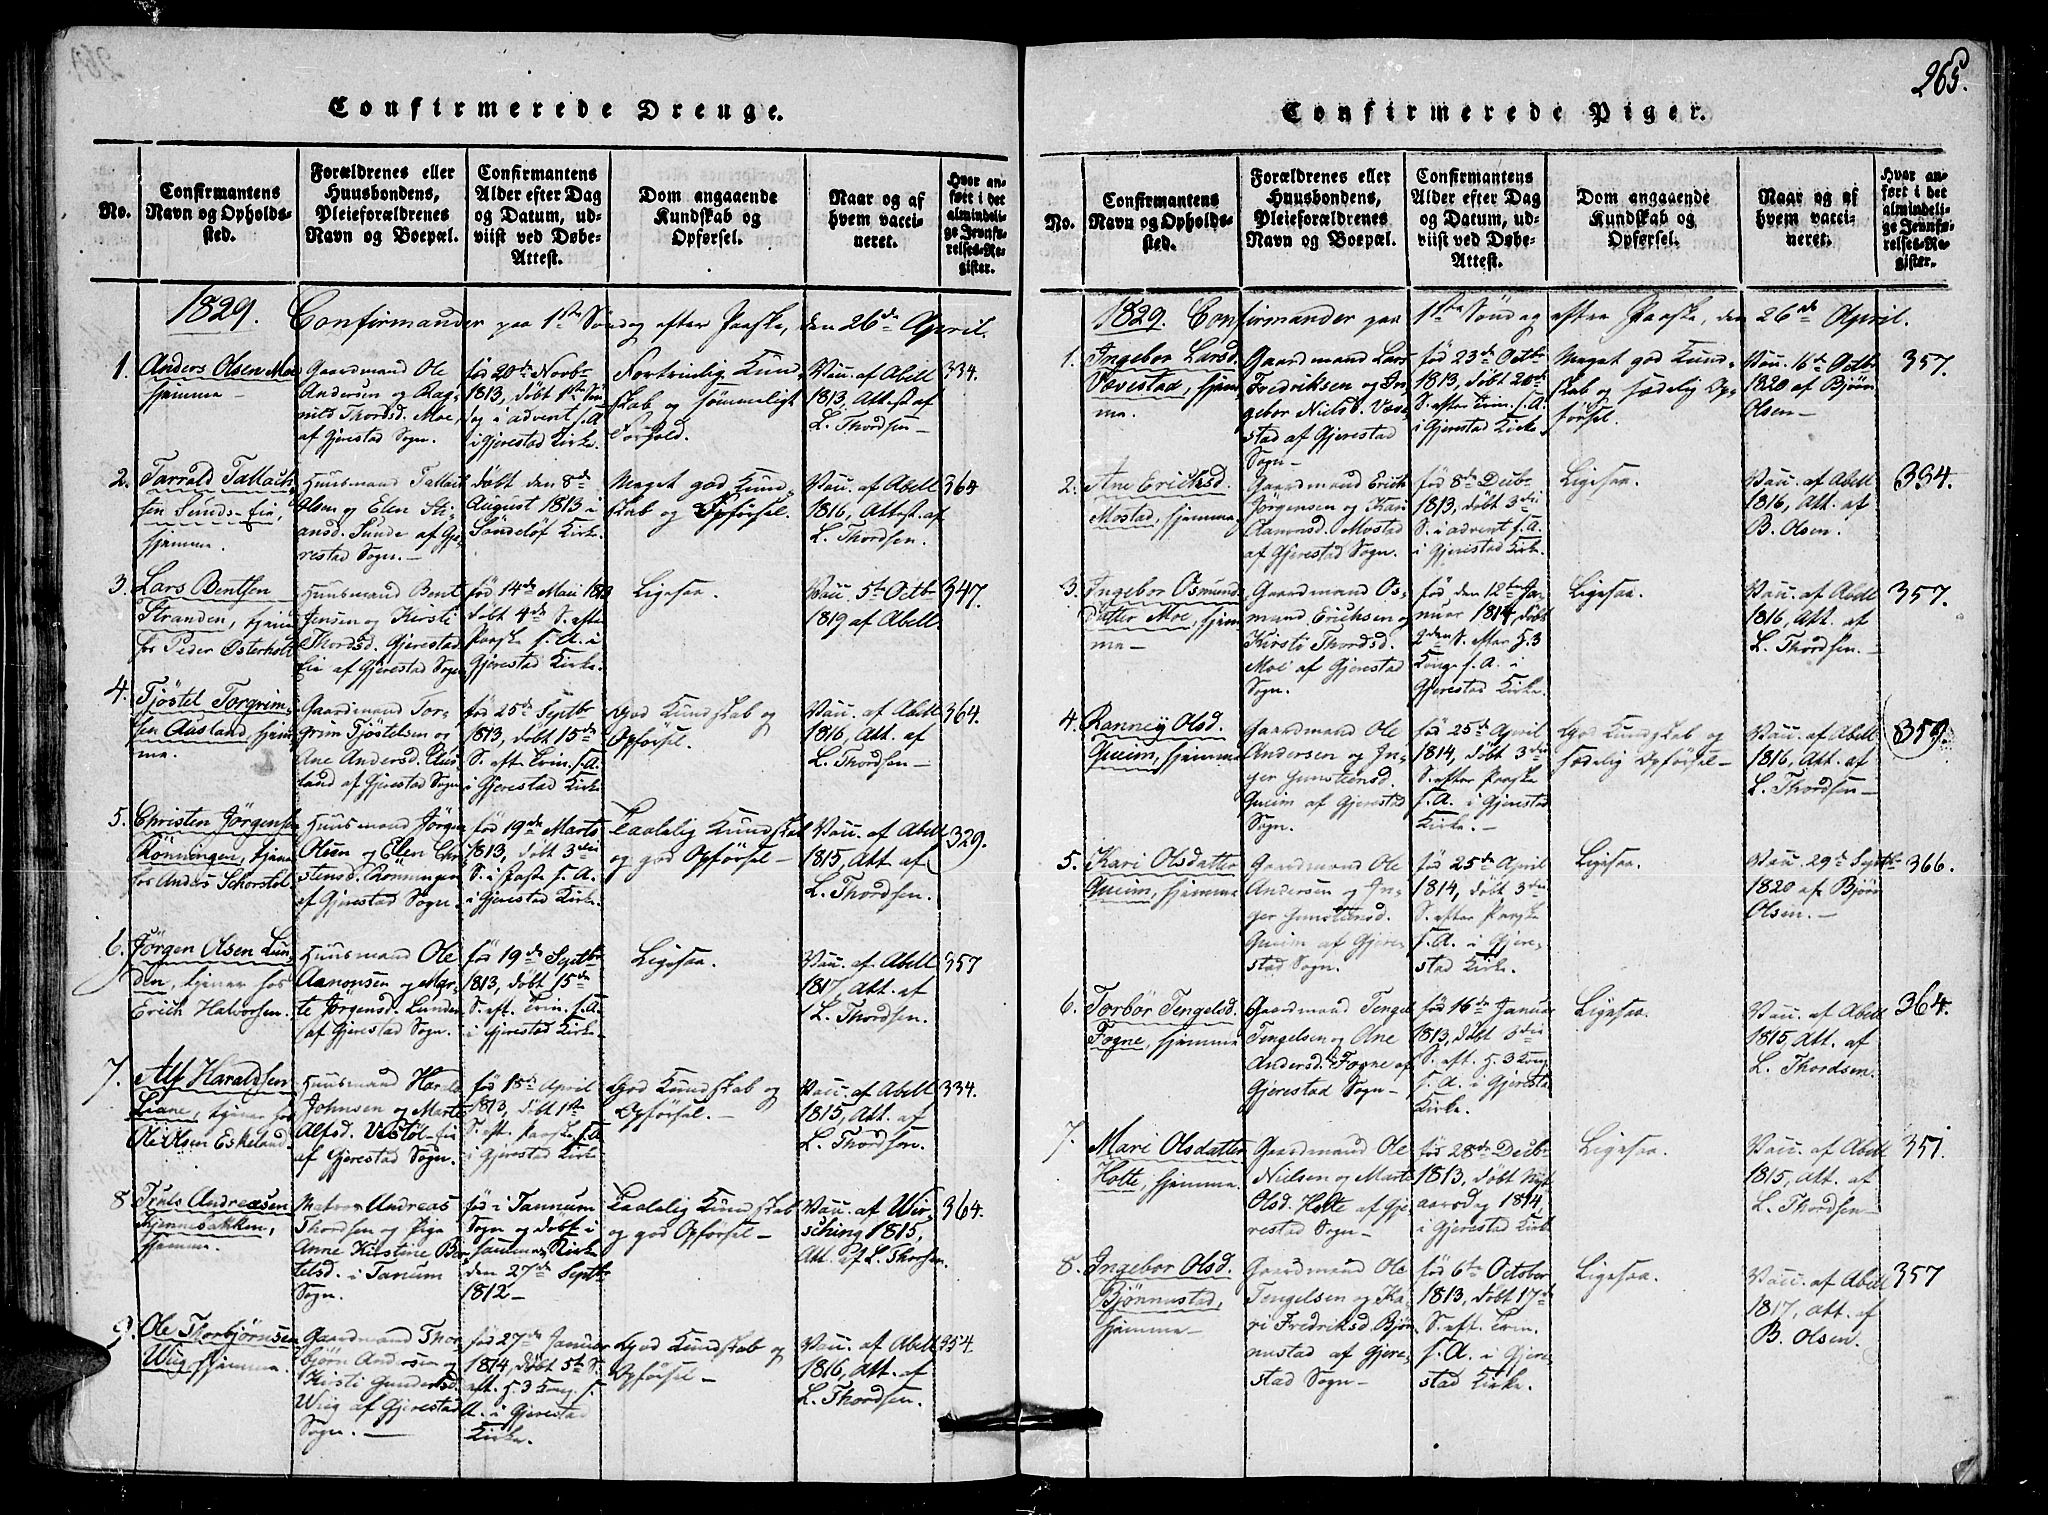 265.
Confirmerede Drenge.
No.
Confirmantens
Navn og Opholds-
sted.
Forældrenes eller
Huusbondens,
Pleieforældrenes
Navn og Boepæl.
Confirmantens
Alder efter Dag
og Datum, ud-
viist ved Døbe-
Attest.
Dom angaaende
Kundskab og
Opførsel.
Naar og af
hvem vacci-
neret.
Hvor an-
ført i det
almindeli-
ge Jevnfø-
relses-Re-
gister.
1829. Confirmander paa 1ste Søndag efter Paaske, den 26de April.
1.
Anders Olsen Moe
hjemme
Gaardmand Ole
Andersen og Rag-
nild Thorsd. Moe,
af Gjerestad Sogn.
fød 20de Novbr
1813, døbt 1ste Søn-
dag i advent s. A.
i Gjerestad Kirke.
Fortrinlig Kund-
skab og sømmeligt
Forhold.
Vacc. af Abell
1813. Attest af
L. Thordsen
334.
2.
Tarrald Tallach-
sen Sunds-Eie,
hjemme.
Huusmand Tallach
Olsen og Elen Sti-
ansd. Sunde af Gje-
restad Sogn.
døbt den 8de
August 1813 i
Søndeløf Kirke.
Meget god Kund-
skab og Opførsel.
Vacc. af Abell
1816, Attest af
L. Thordsen.
364
3.
Lars Bentsen
Stranden, tjener
hos Peder Østerholt
Huusmand Bent
Jensen og Kirsti
Thordsd. Gjerestad
Eie af Gjerestad Sogn.
fød 14de Maii 1813
døbt 4de S. efter
Paaske s. A. i
Gjerestad Kirke.
Ligesaa.
Vacc. 5te Octbr
1819 af Abell.
347.
4.
Tjøstel Torgrim-
sen Aasland, hjem-
me.
Gaardmand Tor-
grim Tjøstelsen og
Ane Andersd. Aas-
land af Gjerestad Sogn
fød 25de Septbr
1813, døbt 15de
S. eft. Trin. s. A
i Gjerestad Kirke
God Kundskab og
Opførsel.
Vacc. af Abell
1816, Att. af
L. Thordsen
364.
5.
Christen Jörgensen
Rönningen, tjener
hos Anders Schorstøl
Huusmand Jörgen
Olsen og Elen Chri-
stensd. Rönningen
af Gjerestad Sogn.
fød 19de Marts
1813, døbt 3die
S. i Faste s. A.
i Gjerestad Kirke.
Taalelig Kundskab
og god Opførsel
Vacc. af Abell
1815, Att. af
L. Thordsen.
329.
6.
Jörgen Olsen Lun-
den, tjener hos
Erich Halvorsen.
Huusmand Ole
Aanonsen og Mar-
te Jørgensd. Lunden
af Gjerestad Sogn.
fød 19de Septbr
1813, døbt 15de
S. eft. Trin. s. A.
i Gjerestad Kirke.
Ligesaa.
Vacc. af Abell
1817, Att. af
L. Thordsen.
357
7.
Alf Haraldsen
Liane, tjener hos
Ole Olsen Eskeland.
Huusmand Harald
Johnsen og Marte
Alfsd. Vestøl-Eie
af Gjerestad Sogn.
fød 15de April
1813, døbt 1ste
S. eft. Paaske s. A
i Gjerestad Kirke
God Kundskab og
Opførsel.
Vacc. af Abell
1815, Att. af
L. Thordsen.
334.
8
Truls Andreasen
hjemme.
Matros Andreas
Thordsen og Pige
Anne Kirstine Ber-
telsd. i Tanum
Sogn.
fød i Tannum
Sogn og døbt i
samme Kirke
den 27de Septbr
1812
Taalelig Kundskab
og god Opførsel
Vacc. af Wir-
sching 1815,
Att. af L. Thorsen.
364.
9.
Ole Thorbjørnsen
Wiig, hjemme.
Gaardmand Thor-
bjørn Andersen og
Kirsti Gundersd.
Wiig af Gjerestad
Sogn.
fød 27de Januar
1814, døbt 5te S.
eft. H. 3 Kong. s.
A. i Gjerestad
Kirke.
God Kundskab og
Opførsel
Vacc. af Abell
1816, Att. af
L. Thordsen.
354.
Confirmerede Piger.
No.
Confirmantens
Navn og Opholds-
sted.
Forældrenes eller
Huusbondens,
Pleieforældrenes
Navn og Boepæl.
Confirmantens
Alder efter Dag
og Datum, ud-
viist ved Døbe-
Attest.
Dom angaaende
Kundskab og
Opførsel.
Naar og af
hvem vacci-
neret.
Hvor an-
ført i det
almindeli-
ge Jevnfø-
relses-Re-
gister.
1829. Confirmander paa 1ste Søndag efter Paaske, den 26de April.
1.
Ingebor Larsd.
Vevestad, hjem-
me.
Gaardmand Lars
Fredriksen og In-
gebor Nielsd. Veve-
stad af Gjerestad
Sogn
fød 23de Octbr
1813, døbt 20de
S. efter Trin. s. A.
i Gjerestad Kirke.
Meget god Kund-
skab og sædelig Op-
førsel.
Vacc. 16de Octbr
1820 af Bjørn
Olsen
357.
2.
Ane Erichsd.
Mostad, hjemme.
Gaardmand Erich
Jörgensen og Kari
Aamunsd. Mostad
af Gjerestad Sogn.
fød 8de Decbr
1813, døbt 3die
S. i advent s. A.
i Gjerestad Kirke.
Ligesaa.
Vacc. af Abell
1816, Att. af
B. Olsen.
334.
3.
Ingebor Osmunds-
datter Moe, hjem-
me
Gaardmand Os-
mund Erichsen og
Kirsti Thordsd.
Moe af Gjerestad
Sogn.
fød den 12te Ja-
nuar 1814, døbt
2den S. efter H. 3
Konge s. A. i
Gjerestad Kirke.
Ligesaa.
Vacc. af Abell
1816, Att. af
L. Thordsen.
357.
4.
Ranney Olsd.
Qveim, hjemme
Gaardmand Ole
Andersen og In-
ger Gunstensd.
Qveim af Gjerestad
Sogn.
fød 25de April
1814, døbt 3die
S. efter Paaske
s. A. i Gjerestad
Kirke.
God Kundskab og
sædelig Opførsel
Vacc. af Abell
1816, Att. af
L. Thordsen
359.
5.
Kari Olsdatter
Qveim, hjemme
Gaardmand Ole
Andersen og In-
ger Gunstensd.
Qveim af Gjere-
stad Sogn.
fød 25de April
1814, døbt 3die
S. efter Paaske
s. A. i Gjere-
stad Kirke.
Ligesaa.
Vacc. 29de Septbr
1820 af Bjørn
Olsen.
366.
6.
Torbør Tengelsd.
Fogne, hjemme
Gaardmand Tengel
Tengelsen og Ane
Andersd. Fogne af
Gjerestad Sogn
fød 16de Januar
1813, døbt 3die
S. eft. H. 3 Kong.
s. A. i Gjerestad
Kirke.
Ligesaa.
Vacc. af Abell
1815, Att. af
L. Thordsen.
364.
7.
Mari Olsdatter
Holte, hjemme.
Gaardmand Ole
Nielsen og Marte
Olsd. Holte af Gje-
restad Sogn
fød 28de Decbr
1813, døbt Nyt-
aarsdag 1814,
i Gjerestad Kirke
Ligesaa.
Vacc. af Abell
1815, Att. af
L. Thordsen
351.
8.
Ingebor Olsd.
Bjønnustad,
hjemme
Gaardmand Ole
Tengelsen og Ka-
ri Fredriksd. Bjøn-
nustad af Gjere-
stad Sogn
fød 6te October
1813, døbt 17de
S. eft. Trin.
s. A. i Gjere-
stad Kirke.
Ligesaa.
Vacc. af Abell
1817, Att. af
B. Olsen.
357